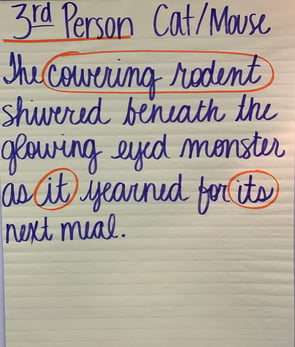 3rd Person Cat/Mouse
The cowering rodent
shivered beneath the
glowing eyed monster
as it yearned for its
next meal.